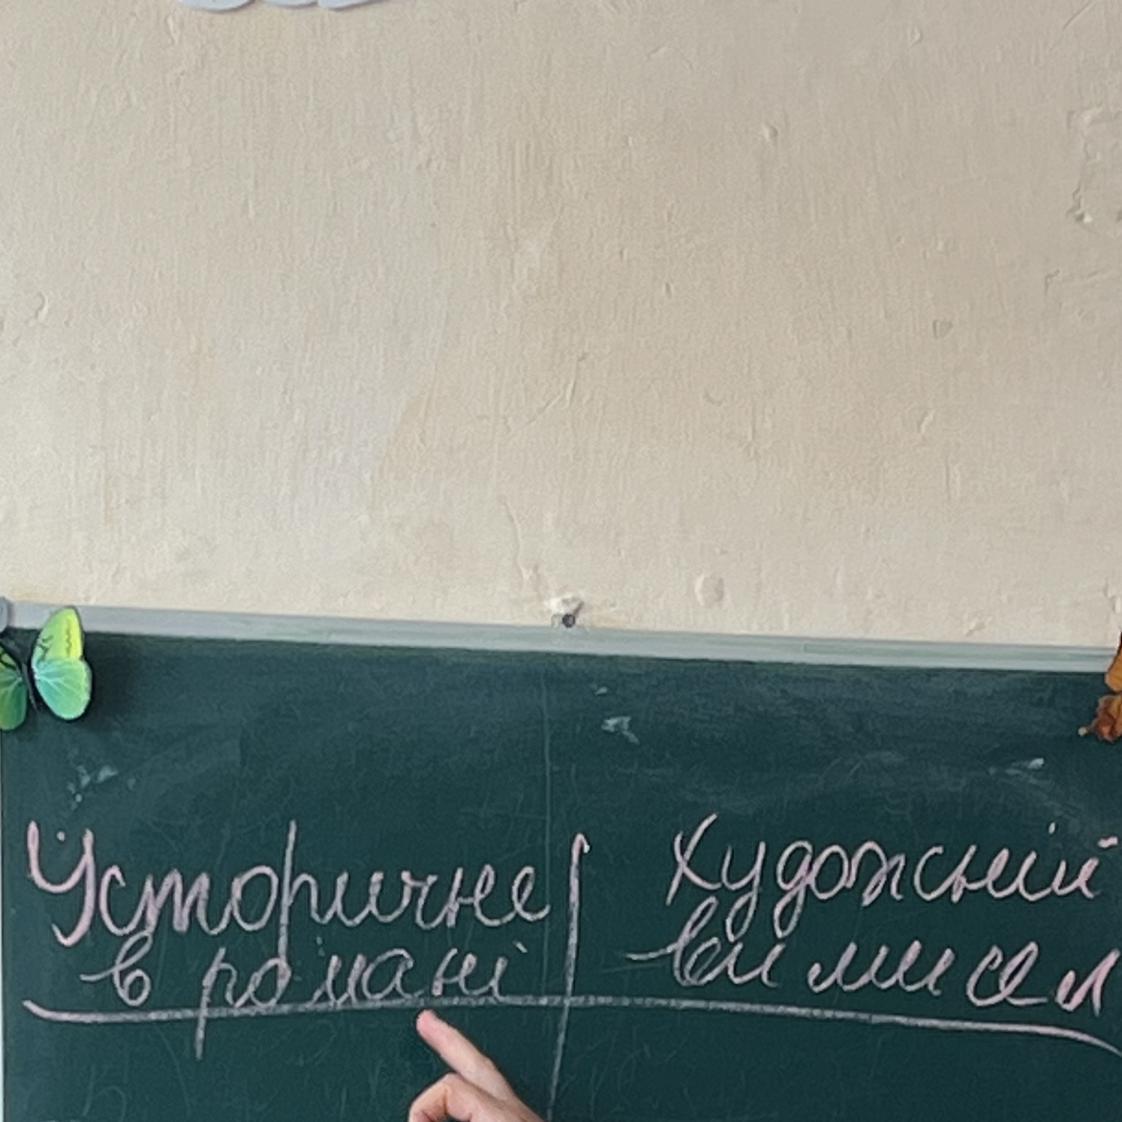 Історичне
в романі
Художній
вимисел